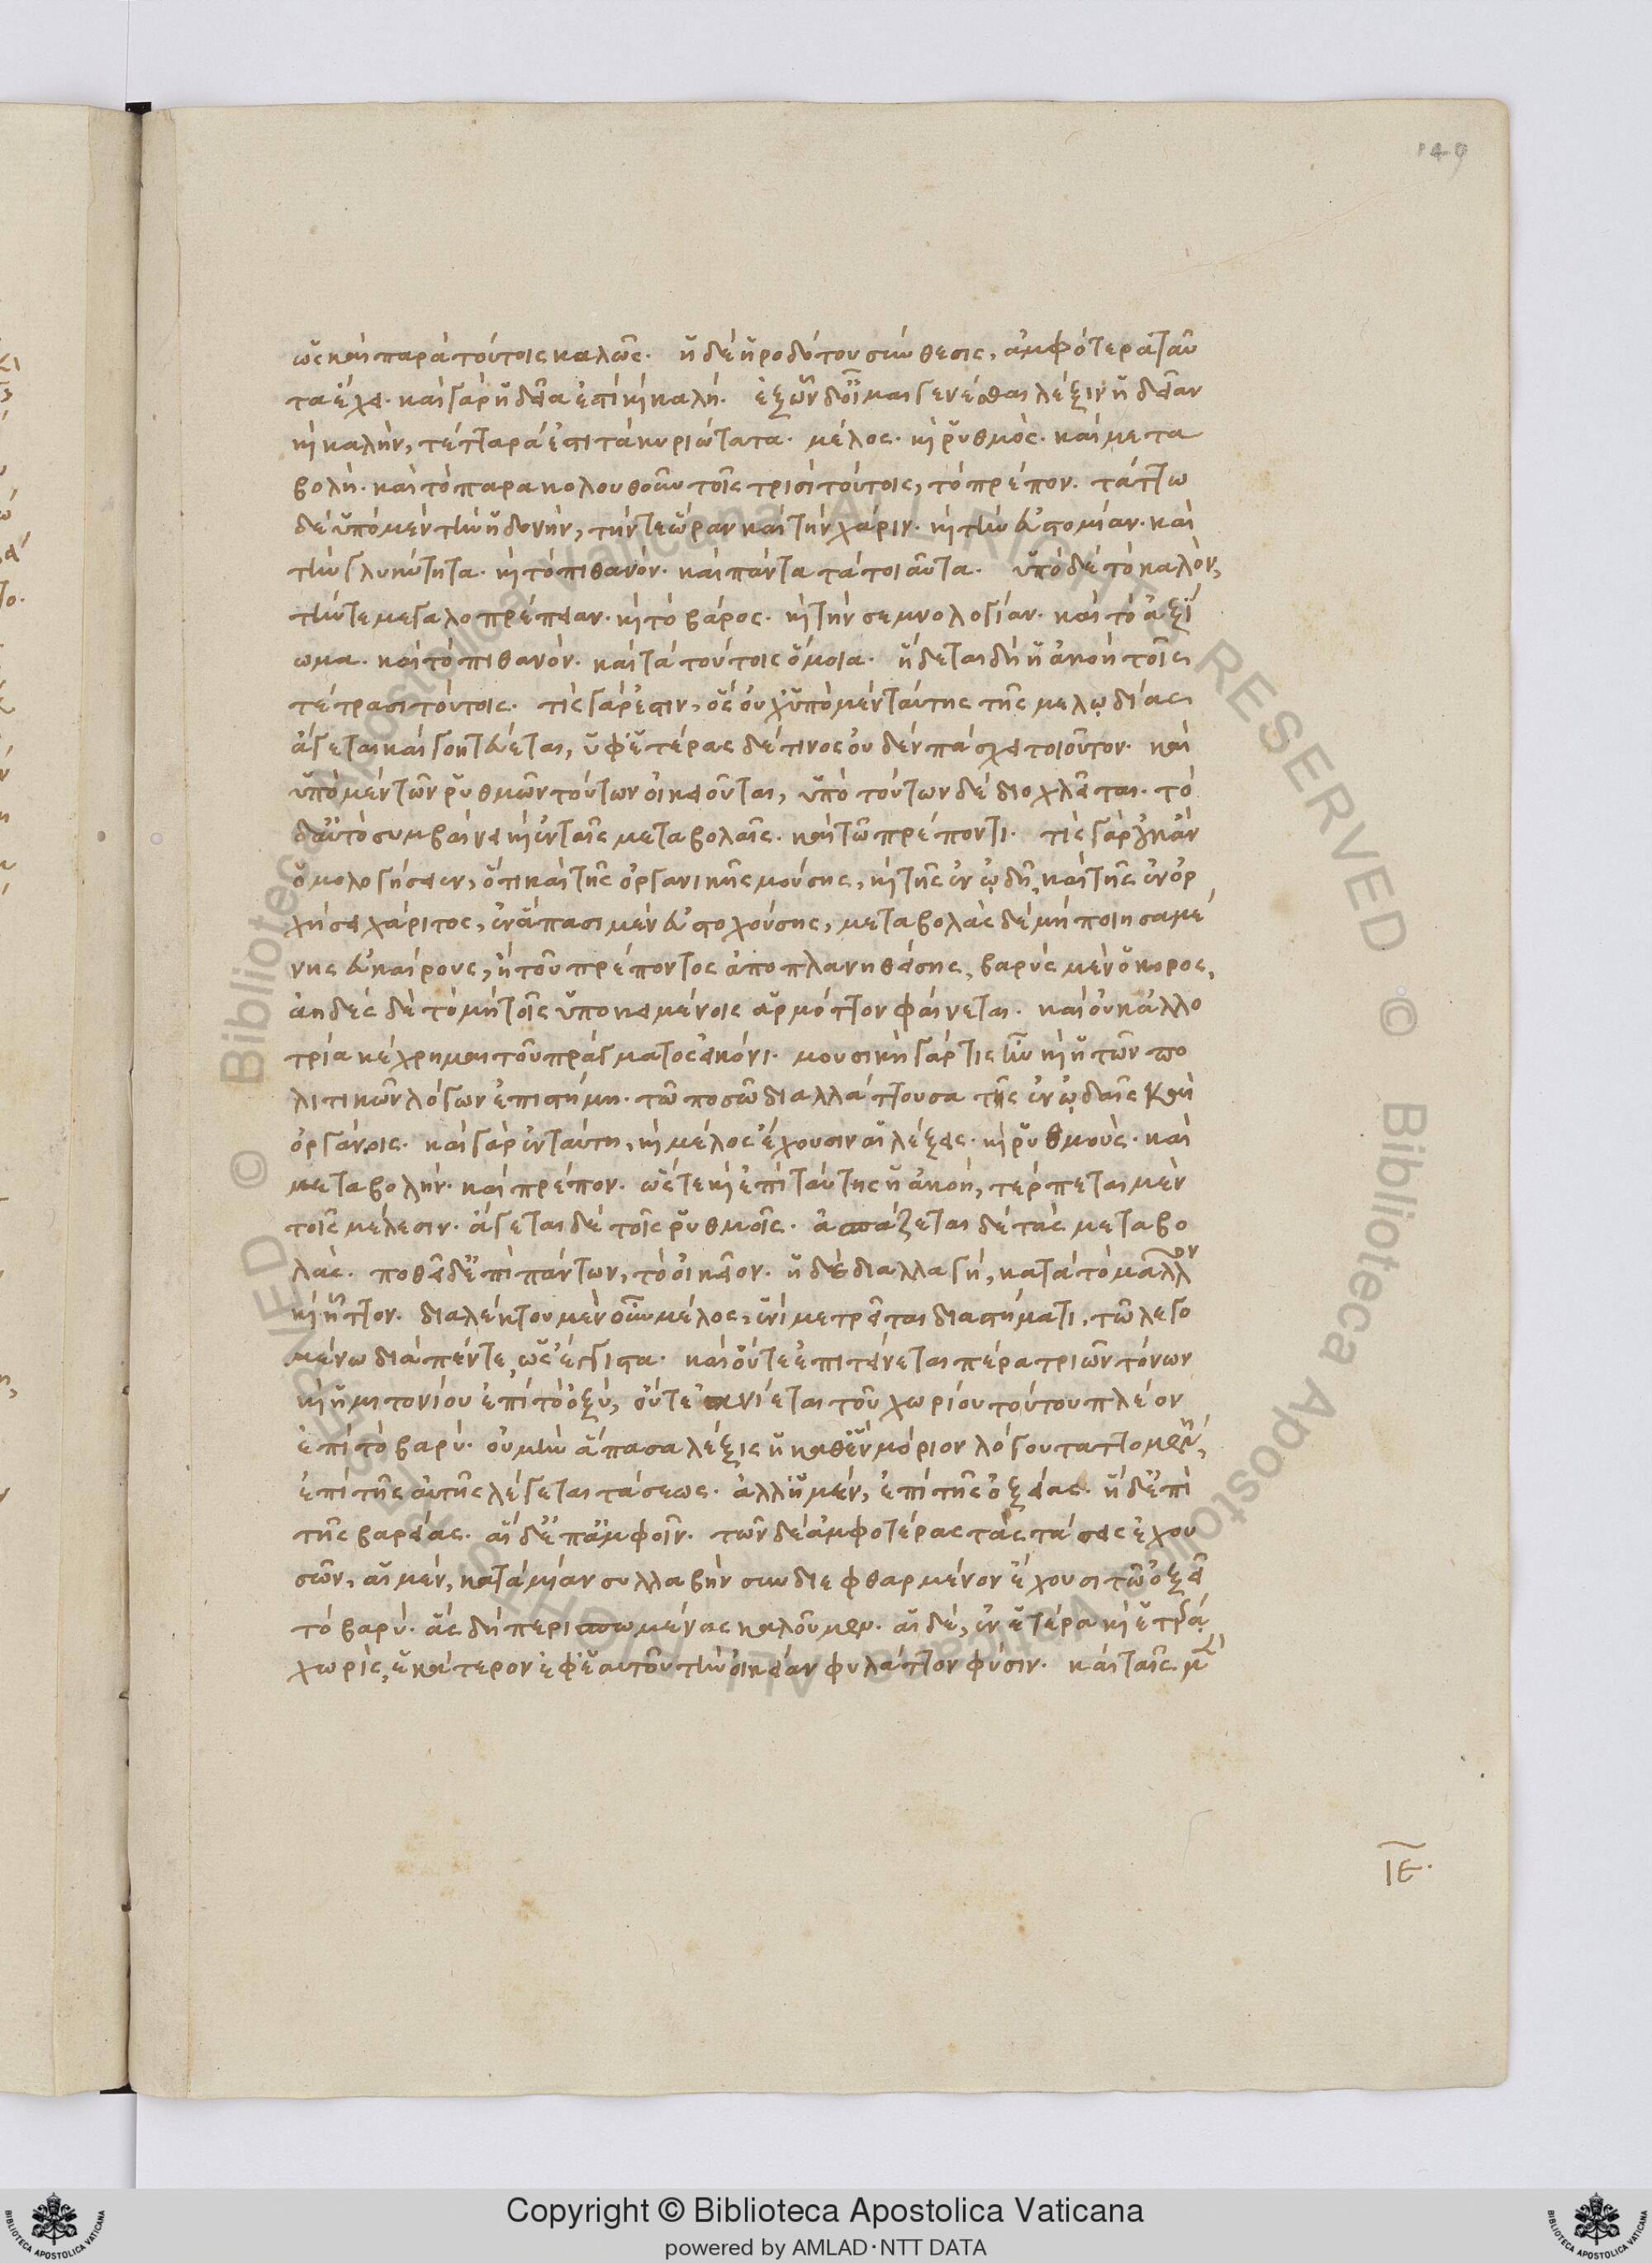 149
ὡς καὶ παρὰ τούτοις καλῶς. ἡ δὲ ἡροδότου σύνθεσις, ἀμφότερα ταῦ
τα ἔχει. καὶ γὰρ ἡδεῖα ἐστὶ κὶ καλή. ἐξ ὧν δ' οἶμαι γενέσθαι λέξιν ἡδεῖαν
κὶ καλὴν, τέτταρά ἐστι τὰ κυριώτατα. μέλος. κὶ ῥυθμὸς. καὶ μετα
βολὴ. καὶ τὸ παρακολουθοῦν τοῖς τρισὶ τούτοις, τὸ πρέπον. τάττω
δὲ ὑπὸ μὲν τὴν ἡδονὴν, τήν τε ὥραν καὶ τὴν χάριν. κὶ τὴν εὐστομίαν. καὶ
τὴν γλυκύτητα. κὶ τὸ πιθανόν. καὶ πάντα τὰ τοιαῦτα. ὑπὸ δὲ τὸ καλὸν,
τήν τε μεγαλοπρέπειαν. κὶ τὸ βάρος. κὶ τὴν σεμνολογίαν. καὶ τὸ ἀξί
ωμα. καὶ τὸ πιθανόν. καὶ τὰ τούτοις ὅμοια. ἥδεται δὴ ἡ ἀκοὴ τοῖς
τέτρασι τούτοις. τίς γάρ ἐστιν, ὃς οὐχ ὑπὸ μὲν ταύτης τῆς μελῳδίας
ἄγεται καὶ γοητεύεται, ὑφ' ἑτέρας δέ τινος οὐδὲν πάσχει τοιοῦτον. καὶ
ὑπὸ μὲν τῶν ῥυθμῶν τούτων οἰκειοῦται, ὑπὸ τούτων δὲ διοχλεῖται. τὸ
δ' αὐτὸ συμβαίνει κὶ ἐν ταῖς μεταβολαῖς. καὶ τῶ πρέποντι. τίς γὰρ οὐκ ἂν
ὁμολογήσειεν, ὅτι καὶ τῆς ὀργανικῆς μούσης, κὶ τῆς ἐν ᾠδῆ, καὶ τῆς ἐν ὀρ
χήσει χάριτος, ἐν ἅπασι μὲν εὐστοχούσης, μεταβολὰς δὲ μὴ ποιησαμέ
νης εὐκαίρους, ἢ τοῦ πρέποντος ἀποπλανηθείσης, βαρὺς μὲν ὁ κορος,
ἀηδὲς δὲ τὸ μὴ τοῖς ὑποκειμένοις ἁρμόττον φαίνεται. καὶ οὐκ ἀλλο
τρία κέχρημαι τοῦ πράγματος εἰκόνι. μουσικὴ γάρ τις ἦν κὶ ἡ τῶν πο
λιτικῶν λόγων ἐπιστήμη. τῶ ποσῶ διαλλάττουσα τῆς ἐν ᾠδαῖς καὶ
ὀργάνοις. καὶ γὰρ ἐν ταύτη, κὶ μέλος ἔχουσιν αἱ λέξεις. κὶ ῥυθμοὺς. καὶ
μεταβολὴν. καὶ πρέπον. ὥστε κὶ ἐπὶ ταύτης ἡ ἀκοὴ, τέρπεται μὲν
τοῖς μέλεσιν. ἄγεται δὲ τοῖς ῥυθμοῖς. ἀσπάζεται δὲ τὰς μεταβο
λὰς. ποθεῖ δ' ἐπὶ πάντων, τὸ οἰκεῖον. ἡ δὲ διαλλαγὴ, κατὰ τὸ μᾶλλον
κὶ ἧττον. διαλέκτου μὲν οὖν μέλος, ἑνὶ μετρεῖται διαστήματι, τῶ λεγο
μένω διὰ πέντε, ὡς ἔγγιστα. καὶ οὔτε ἐπιτείνεται πέρα τριῶν τόνων
κὶ ἡμιτονίου ἐπὶ τὸ ὀξὺ, οὔτε ἀνίεται τοῦ χωρίου τούτου πλέον
ἐπὶ τὸ βαρύ. οὐ μὴν ἅπασα λέξις ἡ καθ' ἓν μόριον λόγου ταττομένη,
ἐπὶ τῆς αὐτῆς λέγεται τάσεως. ἀλλ' ἡ μὲν, ἐπὶ τῆς ὀξείας. ἡ δ' ἐπὶ
τῆς βαρείας. αἱ δ' ἐπ' ἀμφοῖν. τῶν δὲ ἀμφοτέρας τὰς τάσεις ἐχου
σῶν, αἱ μὲν, κατὰ μίαν συλλαβὴν συνδιεφθαρμένον ἔχουσι τῶ ὀξεῖ
τὸ βαρύ. ἃς δὴ περισπωμένας καλοῦμεν. αἱ δὲ, ἐν ἑτέρα κὶ ἑτέρα
χωρὶς, ἑκάτερον ἐφ' ἑαυτοῦ τὴν οἰκείαν φυλάττον φύσιν. καὶ ταῖς μὲν
ιε.
Copyright © Biblioteca Apostolica Vaticana
powered by AMLAD·NTT DATA